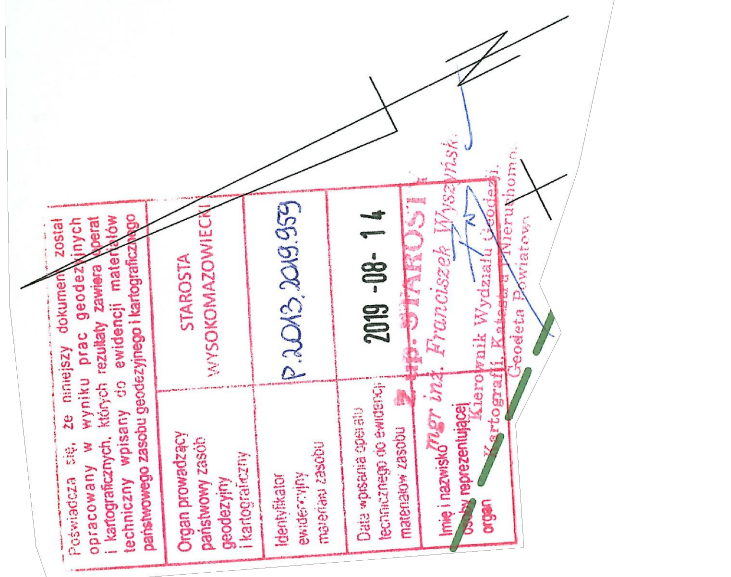 Poświadcza się, że niniejszy dokument został
opracowany w wyniku prac geodezyjnych
i kartograficznych, których rezultaty zawiera operat
techniczny wpisany do ewidencji materiałów
państwowego zasobu geodezyjnego i kartograficznego
Organ prowadzący
państwowy zasób
geodezyjny
i kartograficzny
STAROSTA
WYSOKOMAZOWIECKI
Identyfikator
ewidencyjny
materiału zasobu
P.2013.2019.959
Data wpisania operatu
technicznego do ewidencji
materiałów zasobu
2019 -08- 14
Imię i nazwisko
osoby reprezentującej
organ
Z up. STAROSTY
mgr inż. Franciszek Wyszyńsk.
Kierownik Wydziału Geodezji,
Kartografii, Katastru i Nieruchomo.
Geodeta Powiatowy
N